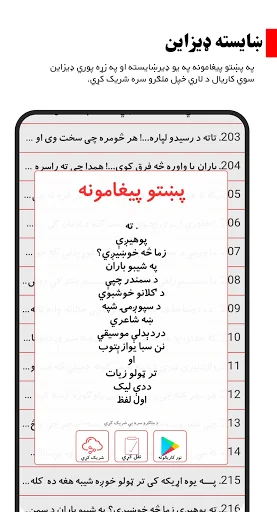 ښایسته ډیزاین
په پښتو پیغامونه په یو ډیرښایسته او په زړه پورې ډیزاین
سوي کاریال د لاري خپل ملګرو سره شریک کړي.
203. تاته د رسیدو لپاره...! هر څومره چی سخت وی او ...
204. باران یا واوره څه فرق کوی...! همدا چی ته راسره ...
05
06
07
08
09
10
11
12
13
14
پښتو پیغامونه
. ته
پوهیږې
زما څه خوښیږي؟
په شیبو باران
د سمندر چپې
د ګلانو خوشبوي
د سپوږمۍ شپه
ښه شاعري
دردېدلې موسیقي
نن سبا یوازیتوب
او
تر ټولو زیات
ددې لیک
اول لفظ
د ملګرو سره یې شریک کړئ
شریک کړئ
نقل کړئ
نور کاریالونه
215. پـــه یوه اړیکه کی تر ټولو خوږه شیبه هغه ده کله...
216. ته پوهیږی زما څه خوښیږی؟ په شیبو باران د سمن...